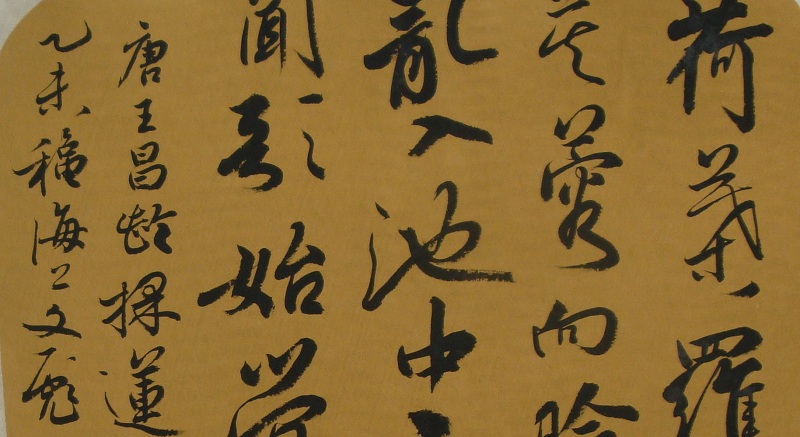 荷葉羅
芙蓉向臉
亂入池中
聞歌始覺
唐王昌齡採蓮
乙未穐海上文彪